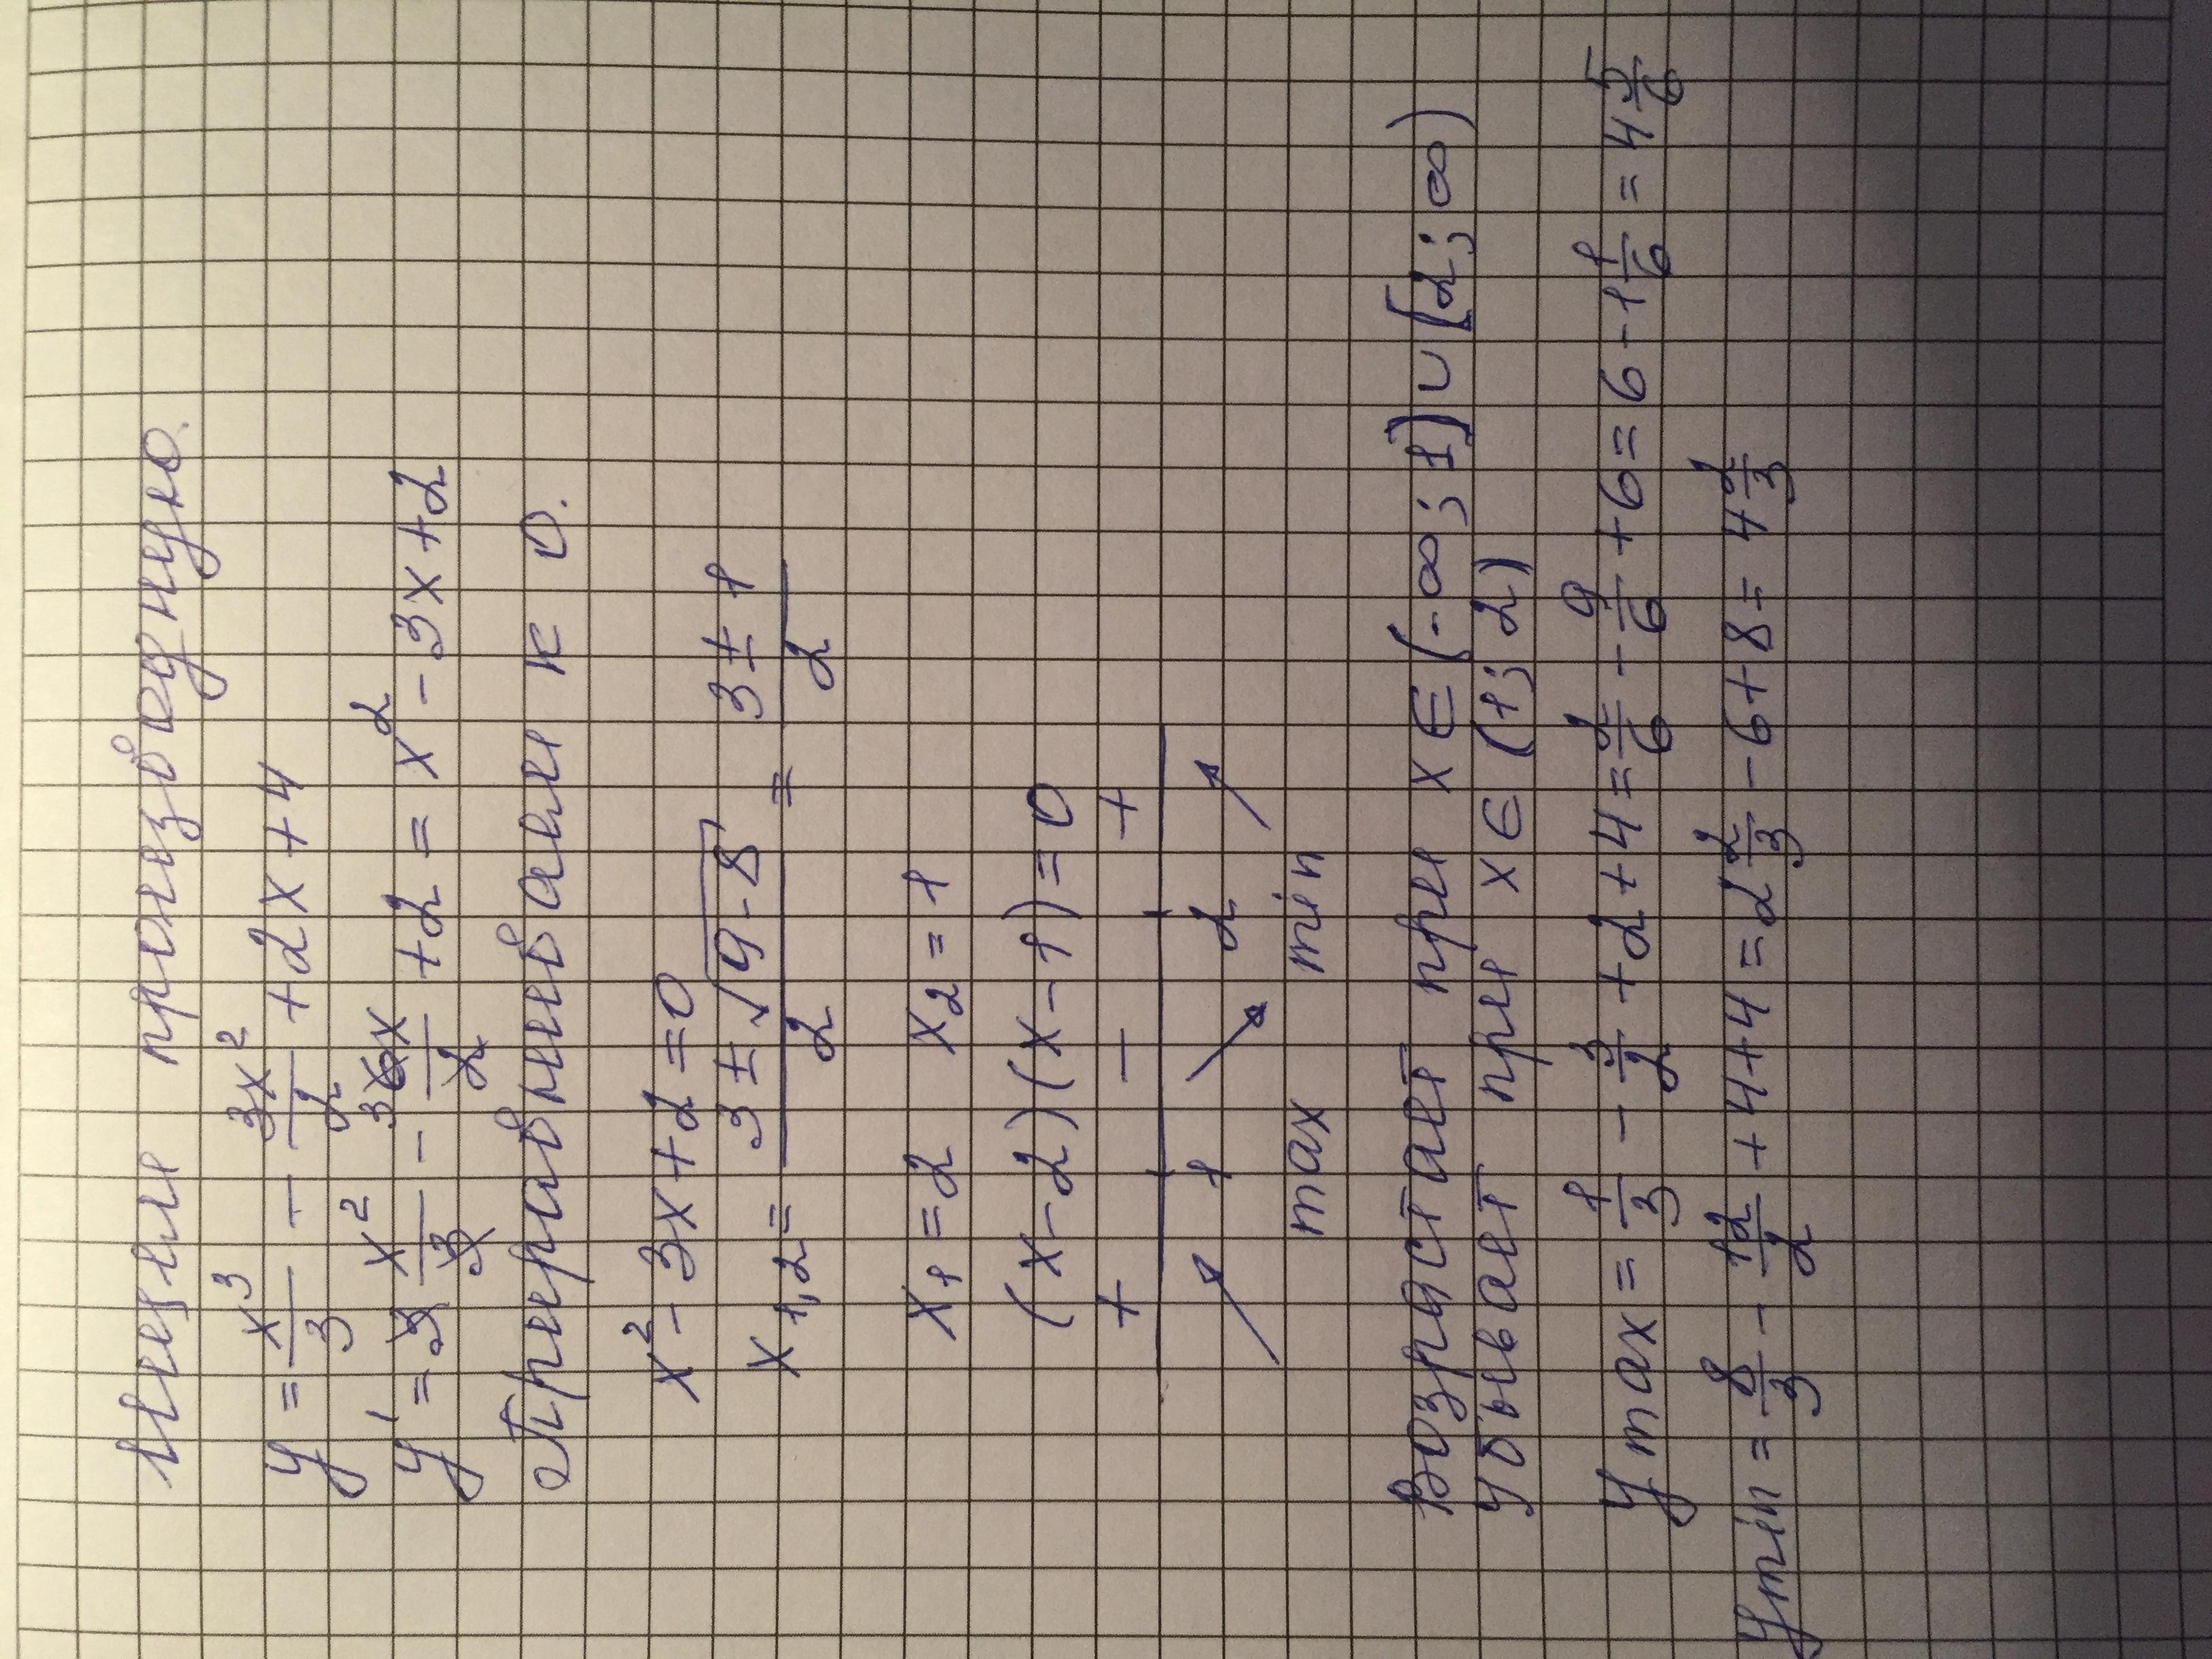 Ищем производную.
y = x³/3 - 3x²/2 + 2x + 4
y' = 3x²/3 - 3 6x/2 + 2 = x² - 3x + 2
Приравниваем к 0.
x² - 3x + 2 = 0
x₁,₂ = (3 ± √(9 - 8))/2 = (3 ± 1)/2
x₁ = 2 x₂ = 1
(x - 2)(x - 1) = 0
+ - +
1 2
max min
Возрастает при x ∈ (-∞; 1) ∪ [2; ∞)
убывает при x ∈ (1; 2)
y max = 1/3 - 3/2 + 2 + 4 = 2/6 - 9/6 + 6 = 6 - 1 1/6 = 4 5/6
y min = 8/3 - 12/2 + 4 + 4 = 2 2/3 - 6 + 8 = 4 2/3